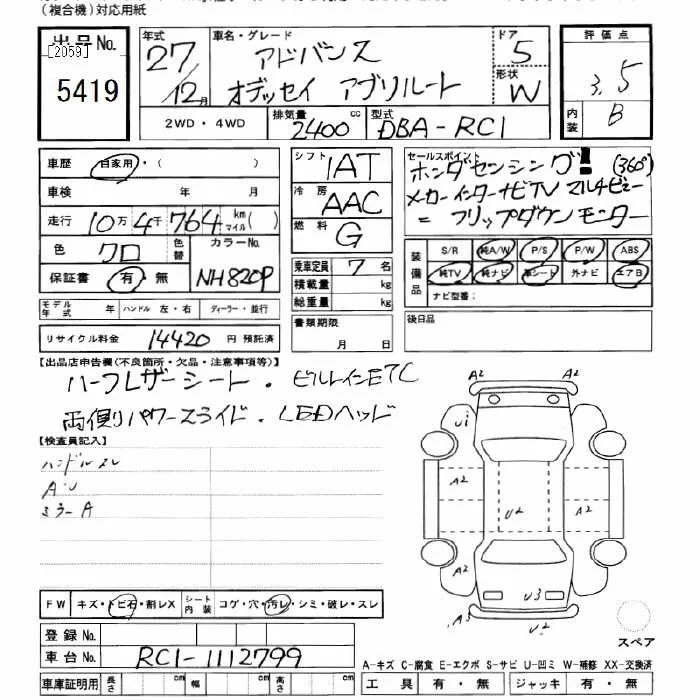 （複合機）対応用紙
出品No.
[2059]
5419
年式
27/12月
車名・グレード
アドバンス
オデッセイ アブソルート
ドア
5
形状
W
評価点
3.5
内装
B
2WD・4WD
排気量
2400cc
型式
DBA-RC1
車歴 自家用・（ ）
車検 年 月
走行 10万4千764km マイル（ ）
色 クロ 色替 カラーNo.
保証書 有・無 NH820P
シフト IAT
冷房 AAC
燃料 G
乗車定員 7名
積載量 kg
総重量 kg
書類期限
月 日
セールスポイント
ホンダセンシング! (360°)
メーカーインターナビTV マルチビュー
= フリップダウンモニター
装備品
S/R 純A/W P/S P/W ABS
純TV 純ナビ 革シート 外ナビ エアB
ナビ型番:
後日品
モデル年式 年 ハンドル 左・右 ディーラー・並行
リサイクル料金 14420円 預託済
【出品店申告欄(不良箇所・欠品・注意事項等)】
ハーフレザーシート・ビルトインETC
両側パワースライド・LEDヘッド
【検査員記入】
ハンドルスレ
A・U
ミラーA
A2 A2
U1
A2 A2
U2
A2
U3
A3 U2
スペア
FW キズ・トビ石・割レX シート内装 コゲ・穴・汚レ・シミ・破レ・スレ
登録No.
車台No. RC1-1112799
A-キズ C-腐食 E-エクボ S-サビ U-凹ミ W-補修 XX-交換済
車庫証明用 長さ cm 幅 cm 高さ cm
工具 有・無 ジャッキ 有・無